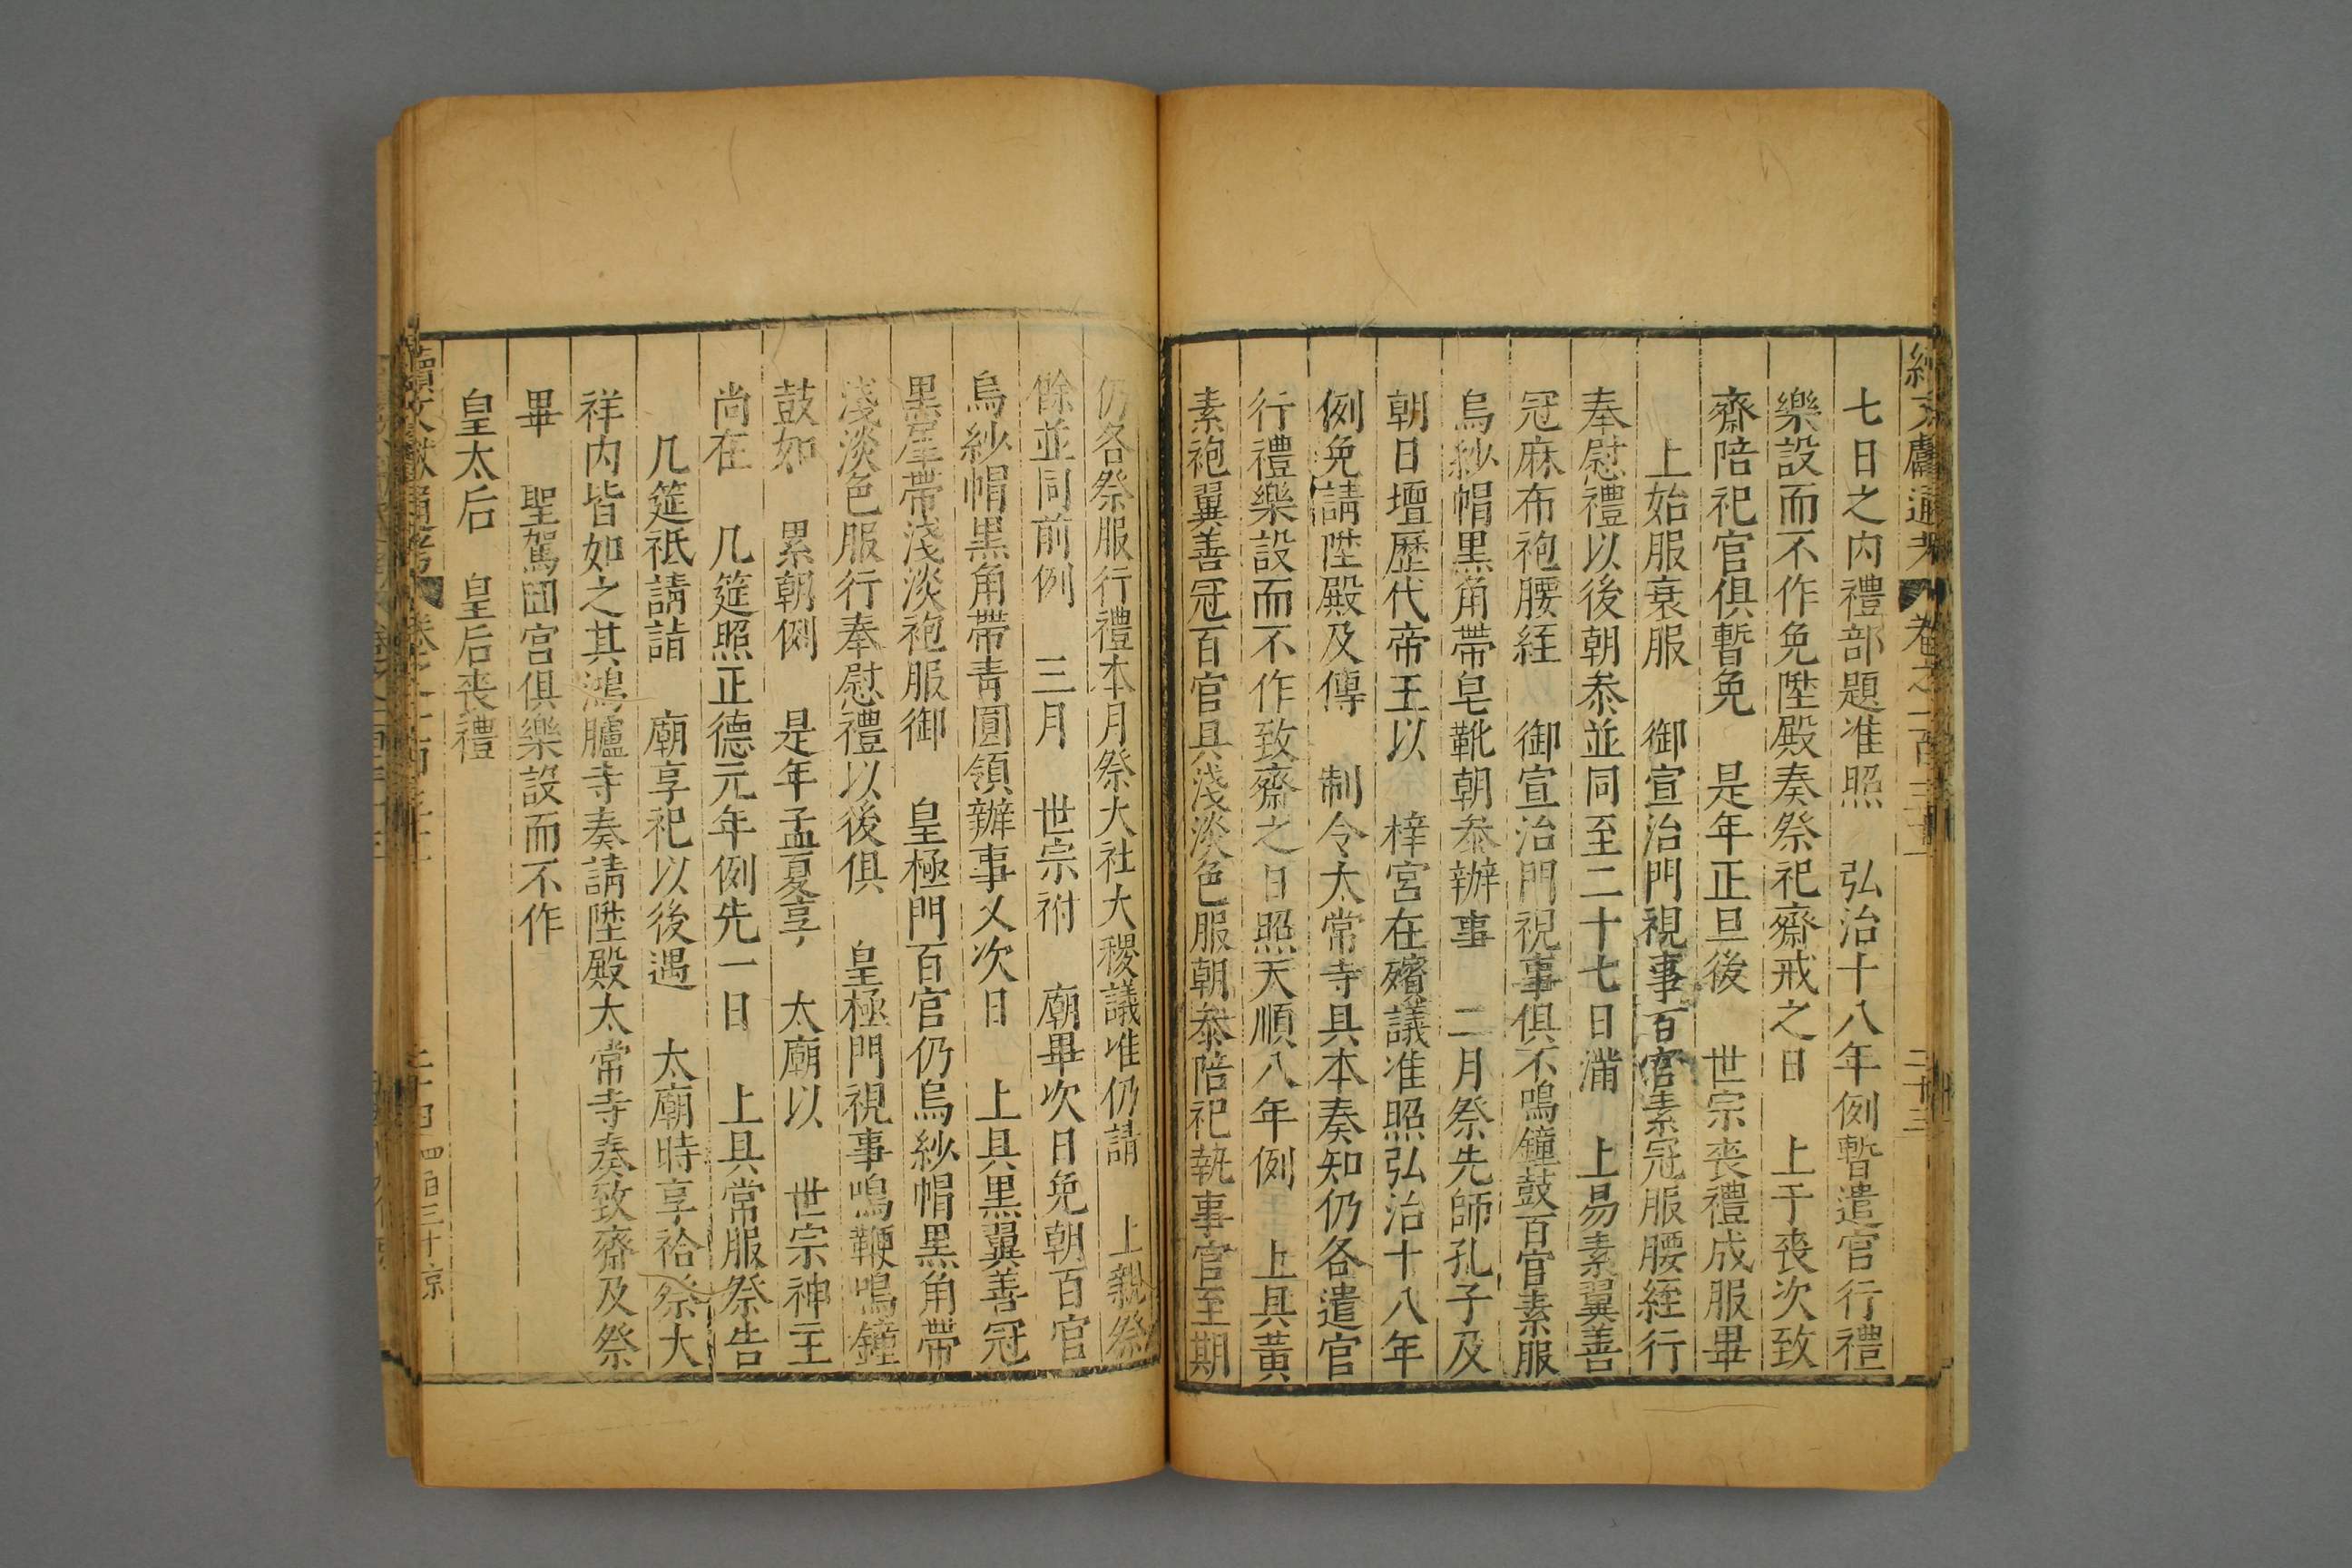 七日之内禮部題准照　弘治十八年例暫遣官行禮
樂設而不作免陞殿奏祭祀齋戒之日　上于喪次致
齋陪祀官俱暫免　是年正旦後　世宗喪禮成服畢
上始服衰服　御宣治門視事百官素冠服腰絰行
奉慰禮以後朝叅並同至二十七日滿　上易素翼善
冠麻布袍腰絰　御宣治門視事俱不鳴鐘鼓百官素服
烏紗帽黑角帶皂靴朝叅辦事　二月祭先師孔子及
朝日壇歷代帝王以　梓宮在殯議准照弘治十八年
例免請陞殿及傳　制令太常寺具本奏知仍各遣官
行禮樂設而不作致齋之日照天順八年例　上具黃
素袍翼善冠百官具淺淡色服朝叅陪祀執事官至期
仍各祭服行禮本月祭大社大稷議准仍請　上親祭
餘並同前例　三月　世宗祔　廟畢次日免朝百官
烏紗帽黑角帶青圓領辦事又次日　上具黑翼善冠
黑犀帶淺淡袍服御　皇極門百官仍烏紗帽黑角帶
淺淡色服行奉慰禮以後俱　皇極門視事鳴鞭鳴鐘
鼓如　累朝例　是年孟夏享　太廟以　世宗神主
尚在　几筵照正德元年例先一日　上具常服祭告
几筵祗請詣　廟享祀以後遇　太廟時享祫祭大
祥内皆如之其鴻臚寺奏請陞殿太常寺奏致齋及祭
畢　聖駕囬宮俱樂設而不作
皇太后　皇后喪禮